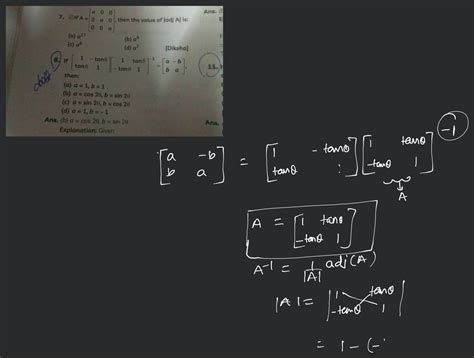 7. If A = [a 0 0; 0 a 0; 0 0 a], then the value of |adj A| is:
(a) a²⁷ (b) a⁹
(c) a⁶ (d) a²
[Diksha]
8. If [1 -tanθ; tanθ 1] [1 tanθ; -tanθ 1]⁻¹ = [a -b; b a]
then:
(a) a = 1, b = 1
(b) a = cos 2θ, b = sin 2θ
(c) a = sin 2θ, b = cos 2θ
(d) a = 1, b = -1
Ans. (b) a = cos 2θ, b = sin 2θ
Explanation: Given
11.
[a -b; b a] = [1 -tanθ; tanθ 1] [1 tanθ; -tanθ 1]⁻¹
A
A = [1 tanθ; -tanθ 1]
A⁻¹ = 1/|A| adj(A)
|A| = |1 tanθ; -tanθ 1|
= 1 - (-